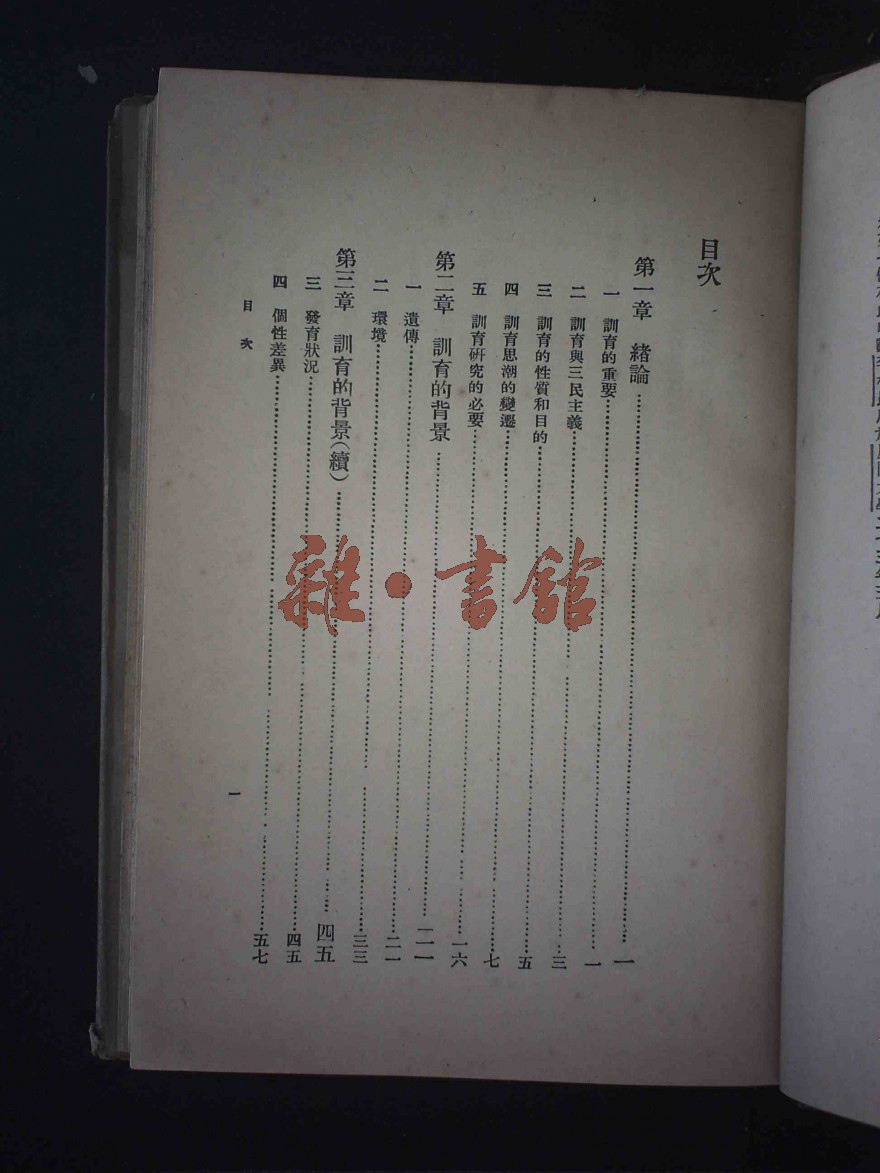 目次
第一章 緒論……一
一 訓育的重要……一
二 訓育與三民主義……三
三 訓育的性質和目的……五
四 訓育思潮的變遷……七
五 訓育研究的必要……一六
第二章 訓育的背景……二一
一 遺傳……二一
二 環境……三三
第三章 訓育的背景(續)……四五
三 發育狀況……四五
四 個性差異……五七
目次
一
雜·書館